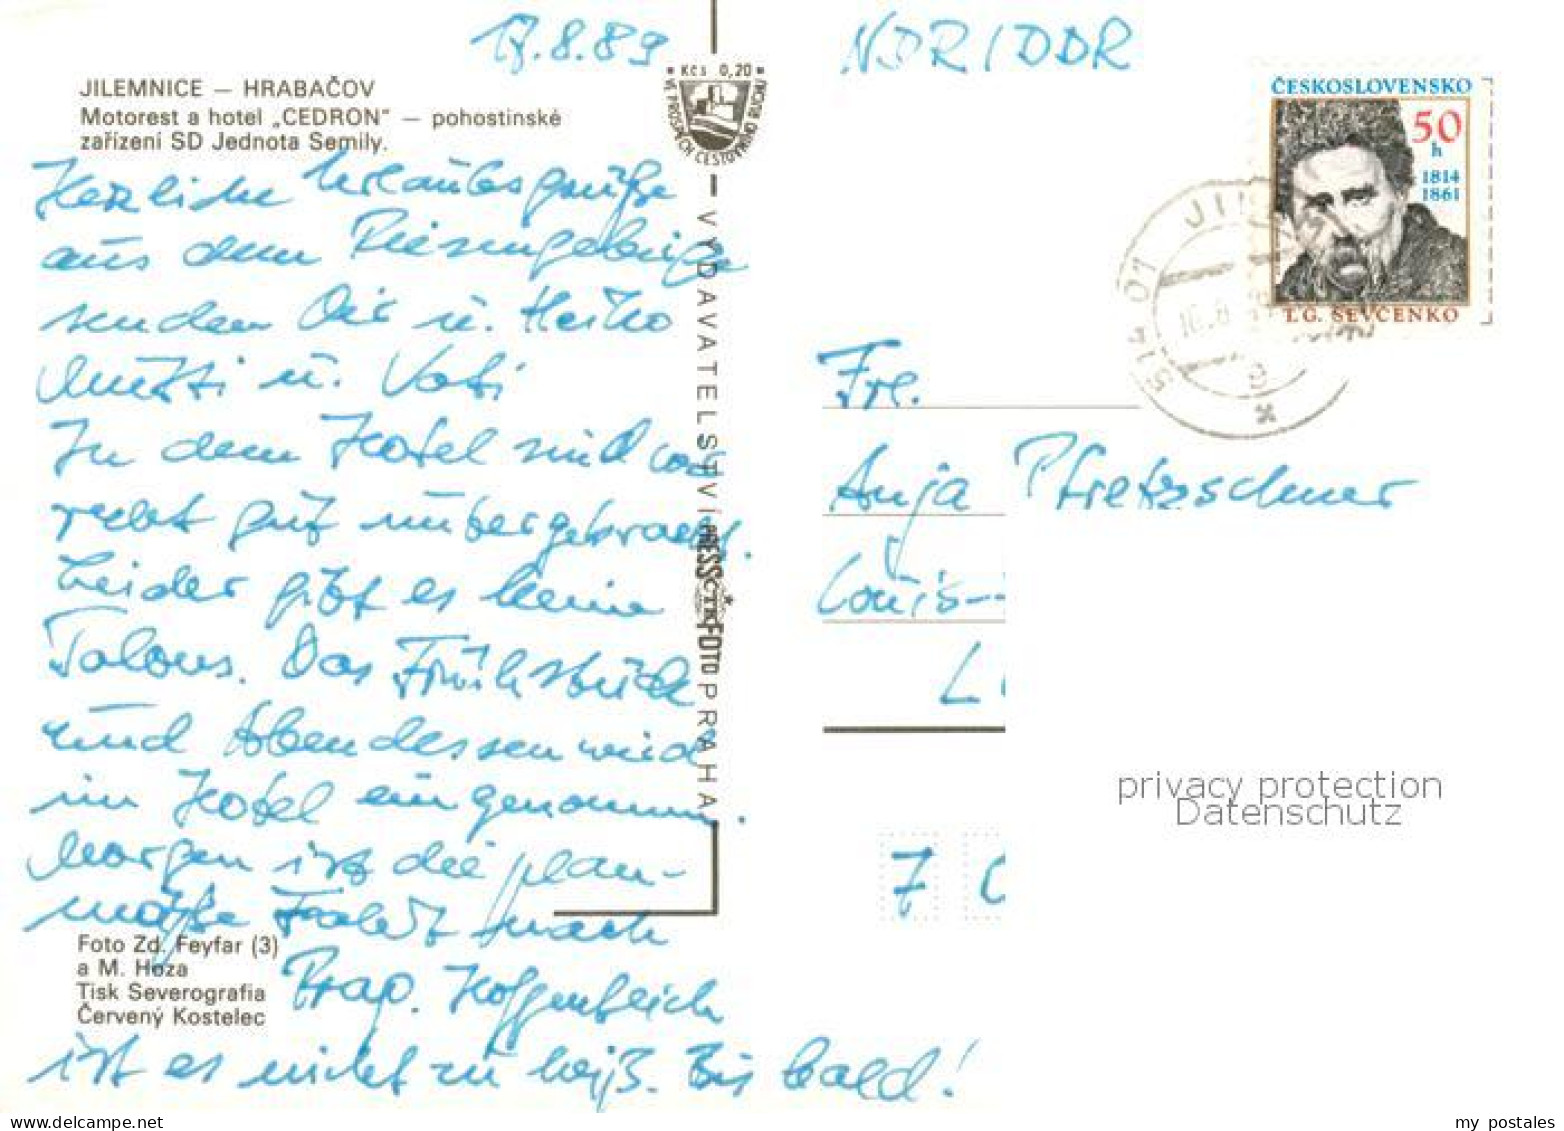 17.8.89
NDR/DDR
JILEMNICE — HRABAČOV
Motorest a hotel „CEDRON" — pohostinské
zařízení SD Jednota Semily.
Herzliche Urlaubsgrüße
aus dem Riesengebirge
senden Dir u. Heiko
Mutti u. Vati
In dem Hotel sind wir
recht gut untergebracht.
Leider gibt es keine
Talons. Das Frühstück
und Abendessen wird
im Hotel eingenommen.
Morgen ist die plan-
mäßge Fahrt nach
Prag. Hoffentlich
ist es nicht zu heiß. Bis bald!
Foto Zd. Feyfar (3)
a M. Hoza
Tisk Severografia
Červený Kostelec
Kčs 0,20
VE PROSPĚCH CESTOVNÍHO RUCHU
VYDAVATELSTVÍ PRESSFOTO PRAHA
ČTK
ČESKOSLOVENSKO
50
h
1814
1861
T. G. ŠEVČENKO
514 01
Frl.
Anja Pfretzschner
Louis-
L
7
privacy protection
Datenschutz
my postales